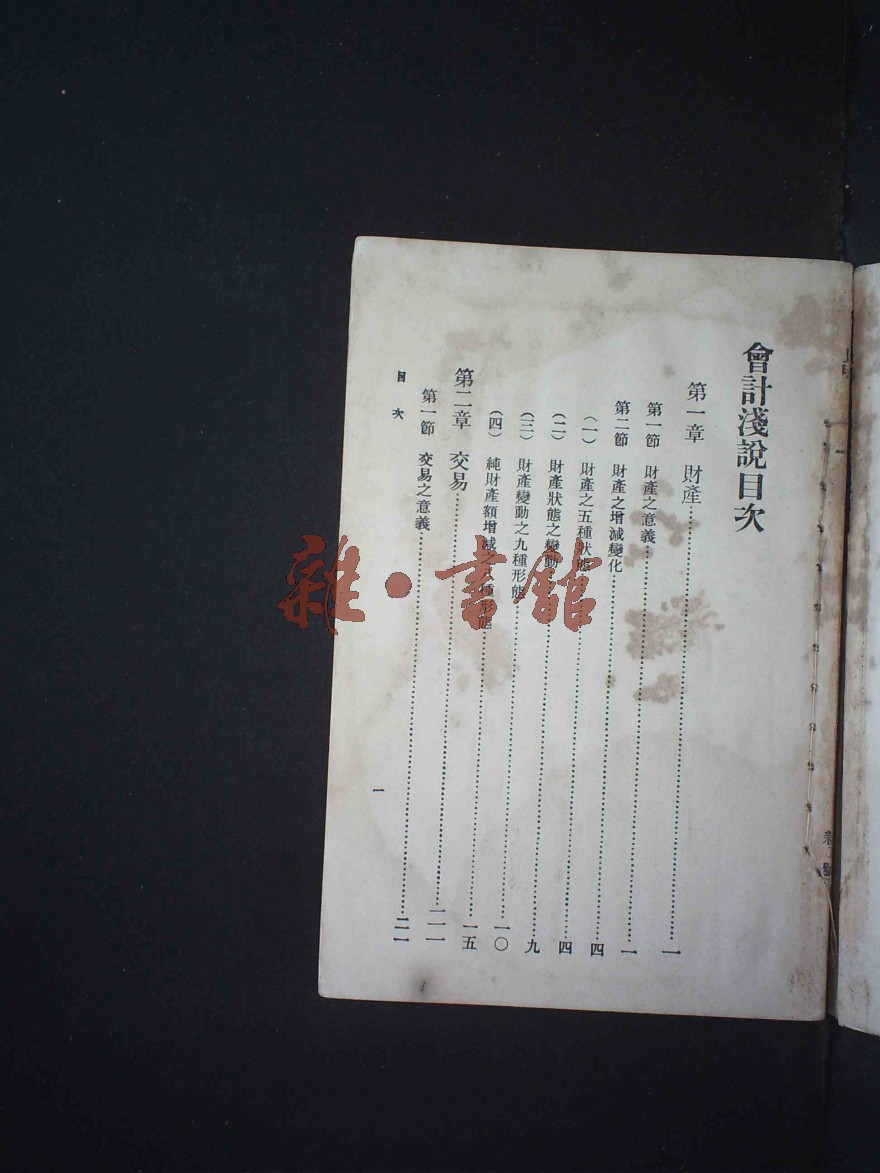 會計淺說目次
第一章 財產……一
第一節 財產之意義……一
第二節 財產之增減變化……四
(一) 財產之五種狀態……四
(二) 財產狀態之變動……九
(三) 財產變動之九種形態……一〇
(四) 純財產額增減之種形態……一五
第二章 交易……二一
第一節 交易之意義……二一
目次
一
雜·書館